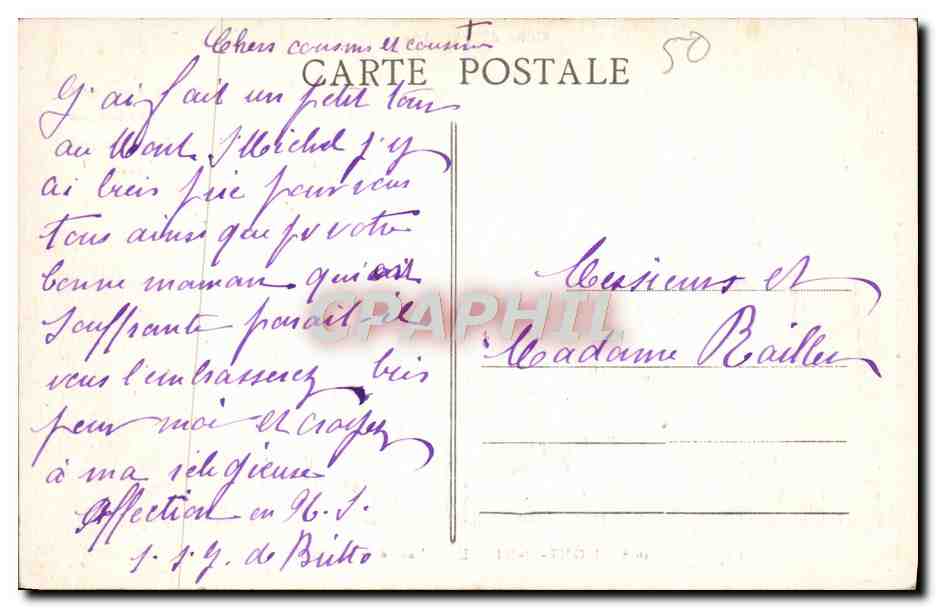 Chers cousins et cousine
50
CARTE POSTALE
J'ai fait un petit tour
au Mont St Michel j'y
ai bien prié pour vous
tous ainsi que pr votre
bonne maman qui est
souffrante parait-il
vous l'embrasserez bien
pour moi et croyez
à ma religieuse
affection en N. S.
S. J. de Britto
Messieurs et
Madame Railler
CPAPHIL